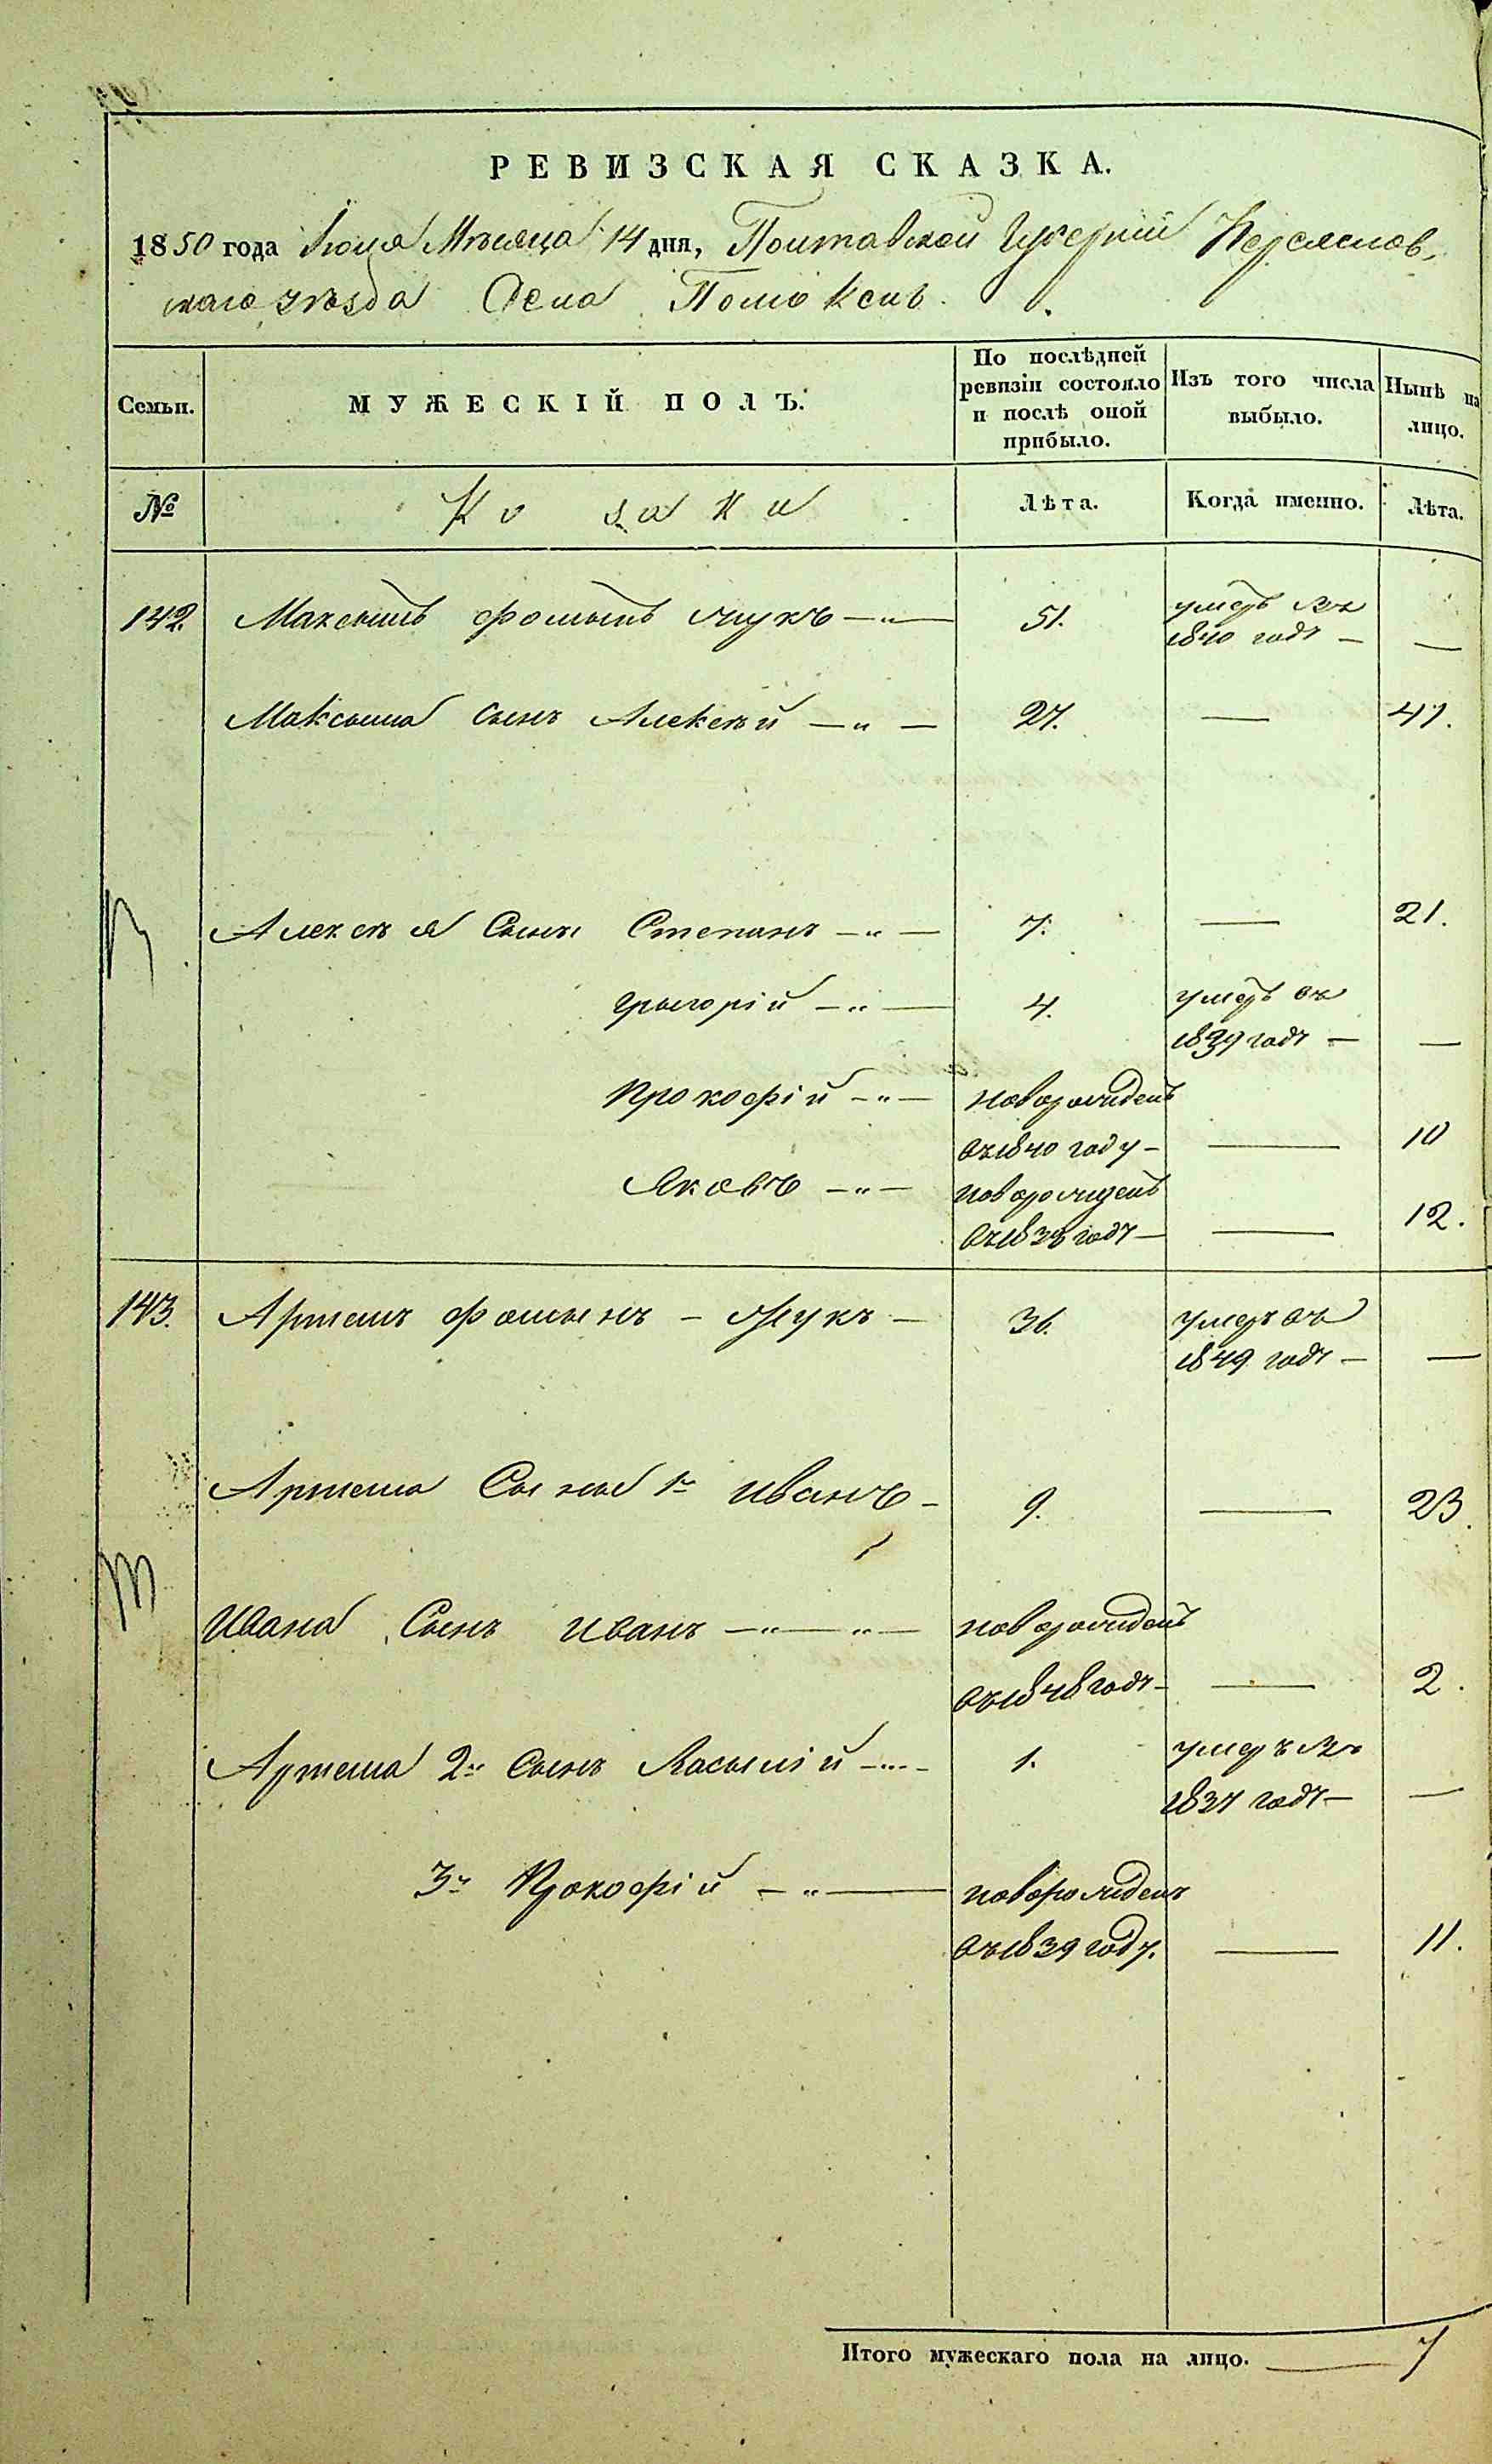 РЕВИЗСКАЯ СКАЗКА.
1850 года Іюля Мѣсяца 14 дня, Полтавской Губерніи Переяслов-
скаго уѣзда Села Помоклей.
Семьи. МУЖЕСКІЙ ПОЛЪ. По послѣдней ревизіи состояло и послѣ оной прибыло. Изъ того числа выбыло. Нынѣ на лицо.
№ Козаки Лѣта. Когда именно. Лѣта.
142. Максымъ Фомынъ Жукъ 51. умеръ въ
1840 году —
Максыма сынъ Алексѣй 27. — 41.
Алексѣя Сыны Степанъ 7. — 21.
Грыгорій 4. умеръ въ
1839 году —
Прокофій новорожденъ
въ 1840 году — 10
Яковъ новорожденъ
въ 1838 году — 12.
143. Артемъ Фомынъ Жукъ 36. умеръ въ
1849 году —
Артема Сыны 1й Иванъ 9. — 23.
Ивана Сынъ Иванъ новорожденъ
въ 1848 году — 2.
Артема 2й Сынъ Васылій 1. умеръ въ
1837 году —
3й Прокофій новорожденъ
въ 1839 году. — 11.
Итого мужескаго пола на лицо. 7